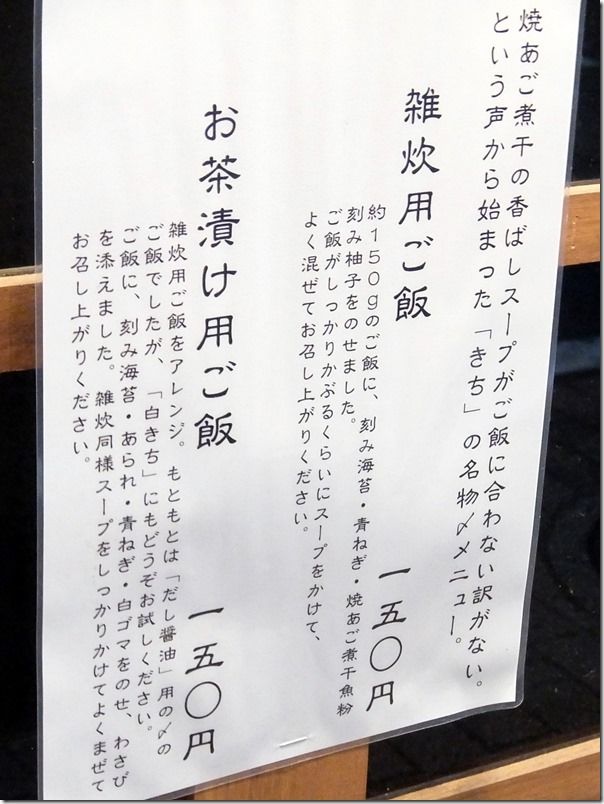 焼あご煮干の香ばしスープがご飯に合わない訳がない。
という声から始まった「きち」の名物〆メニュー。
雑炊用ご飯
一五〇円
約150gのご飯に、刻み海苔・青ねぎ・焼あご煮干魚粉
刻み柚子をのせました。
ご飯がしっかりかぶるくらいにスープをかけて、
よく混ぜてお召し上がりください。
お茶漬け用ご飯
一五〇円
雑炊用ご飯をアレンジ。もともとは「だし醤油」用の〆の
ご飯でしたが、「白きち」にもどうぞお試しください。
ご飯に、刻み海苔・あられ・青ねぎ・白ゴマをのせ、わさび
を添えました。雑炊同様スープをしっかりかけてよくまぜて
お召し上がりください。